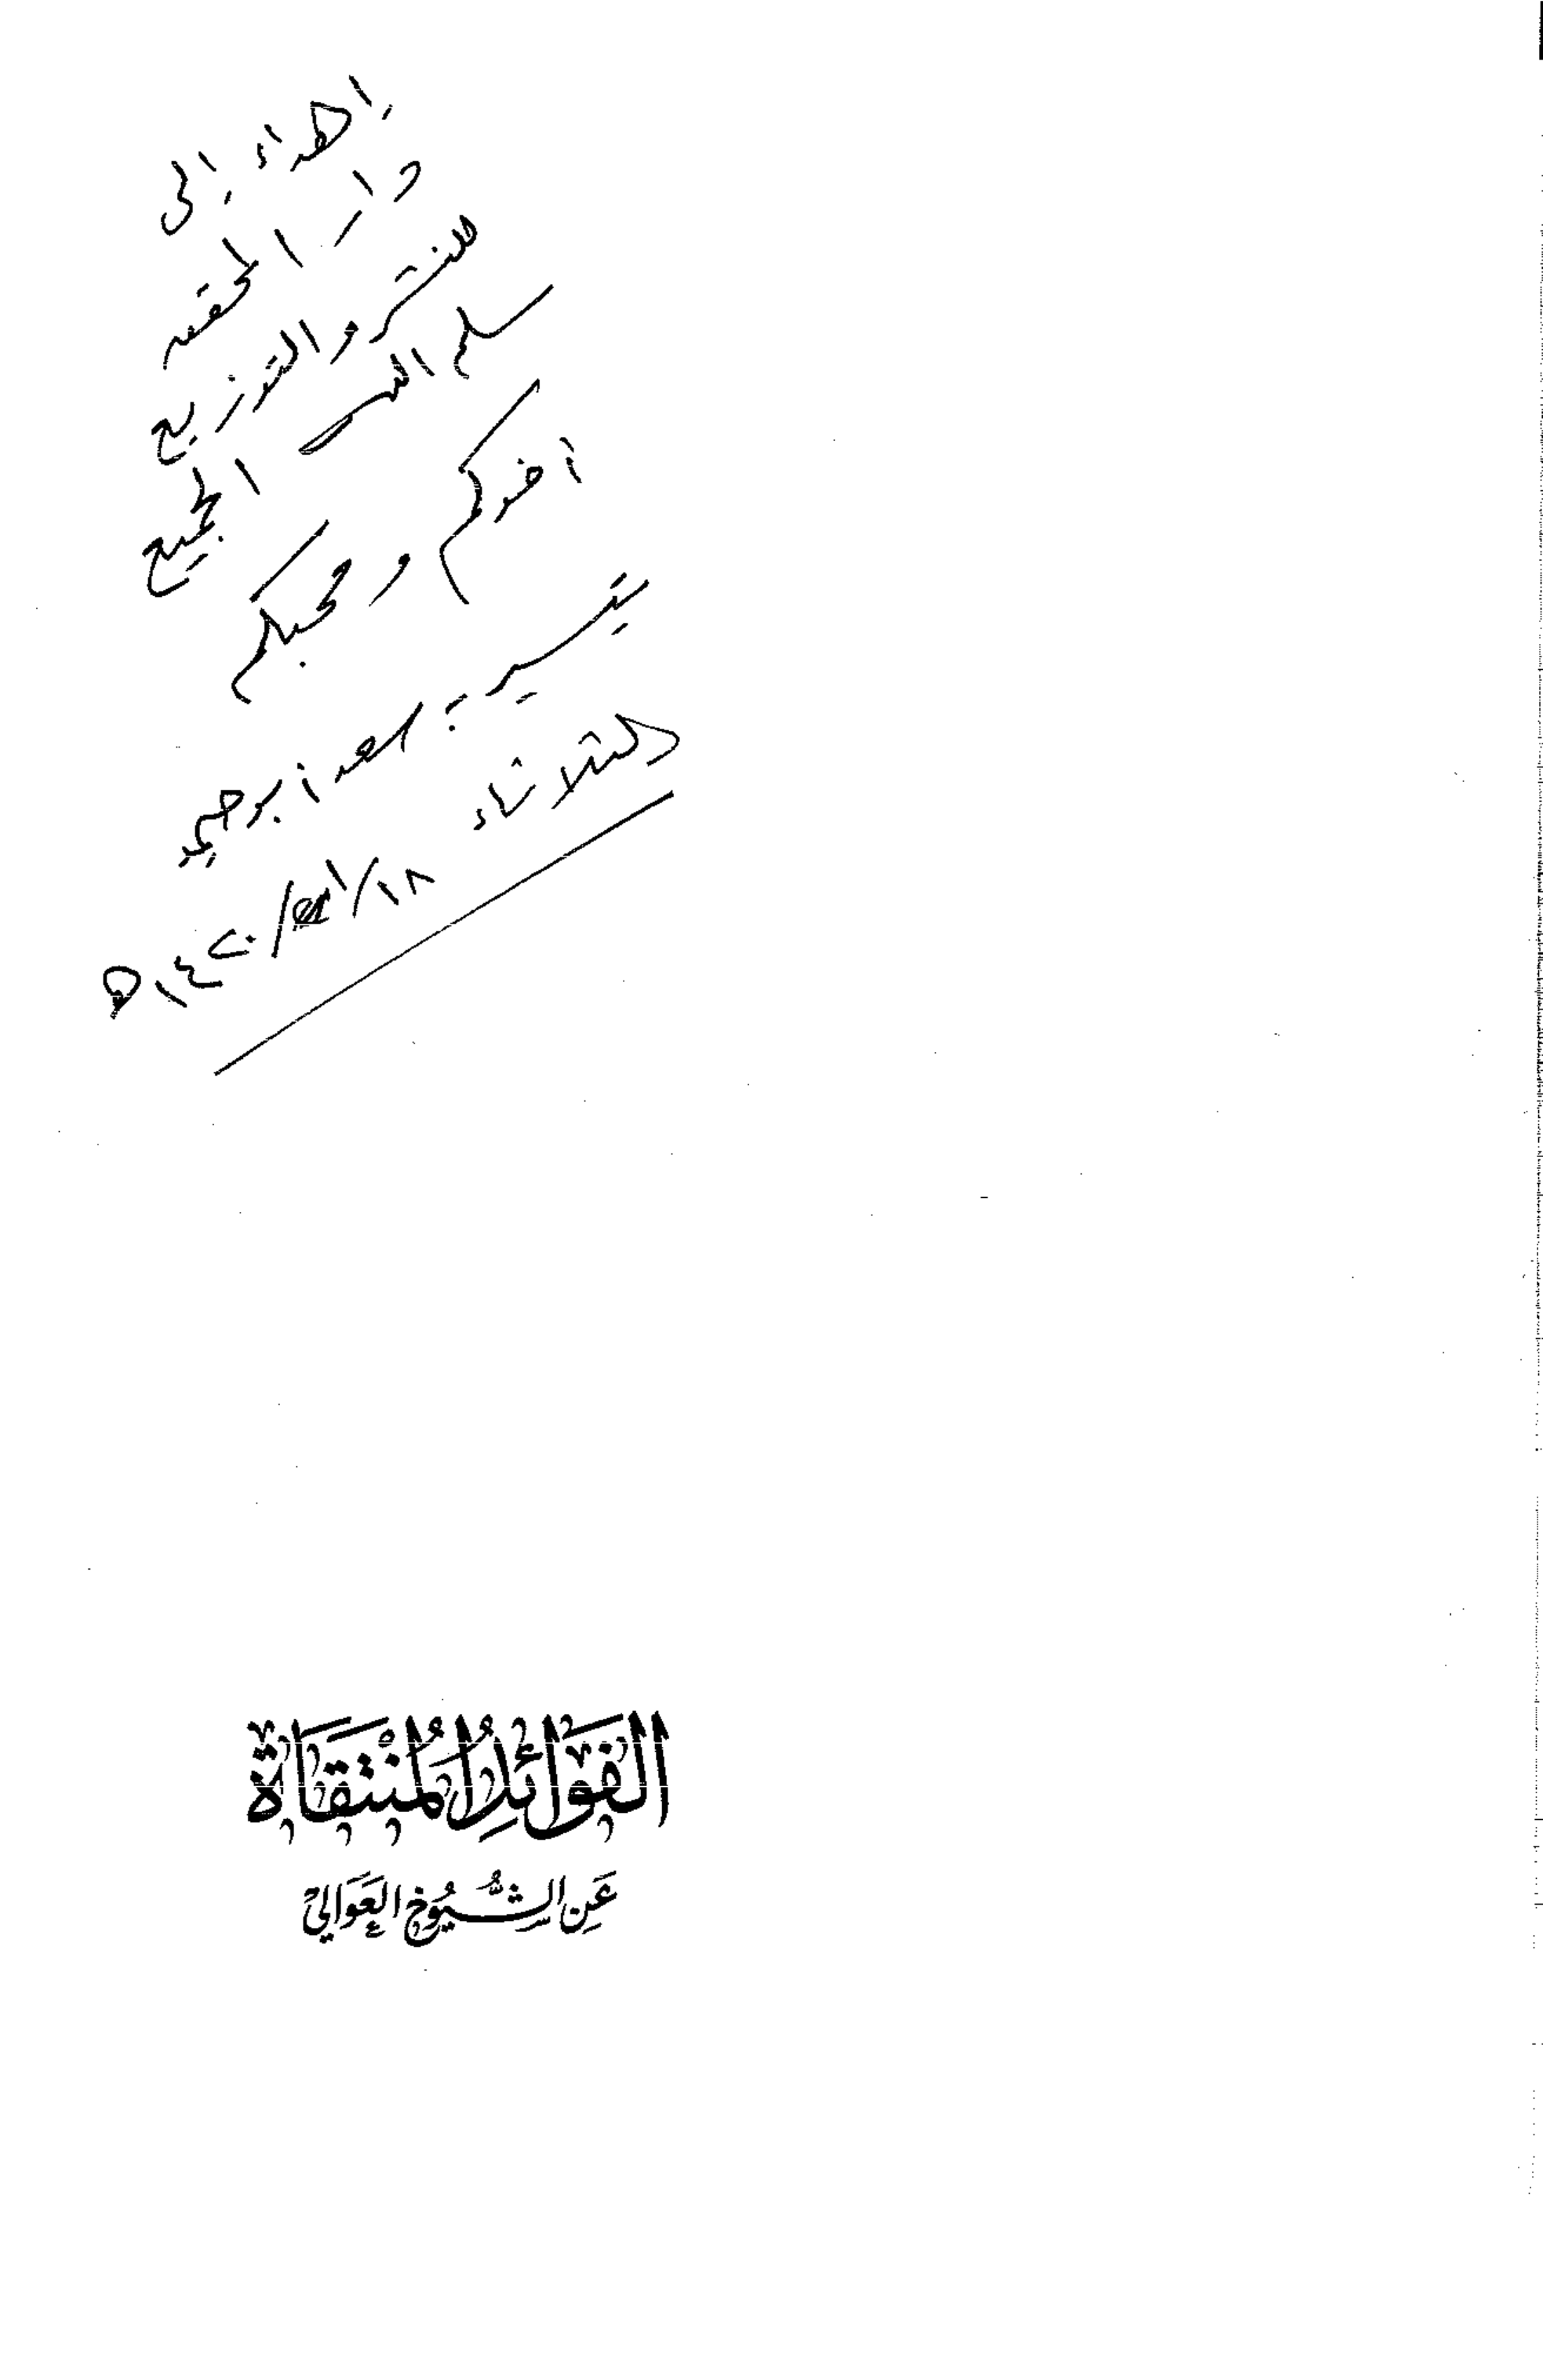 إهداء إلى
دار المحقق
للنشر والتوزيع
سلم الله الجميع
أخوكم ومحبكم
تيسير بن سعد أبوحيمد
الثلاثاء
١٨/١/١٤٢٠هـ
الفَوَائِدُ المُنْتَقَاةُ
عَنِ الشُّيُوخِ العَوَالِي